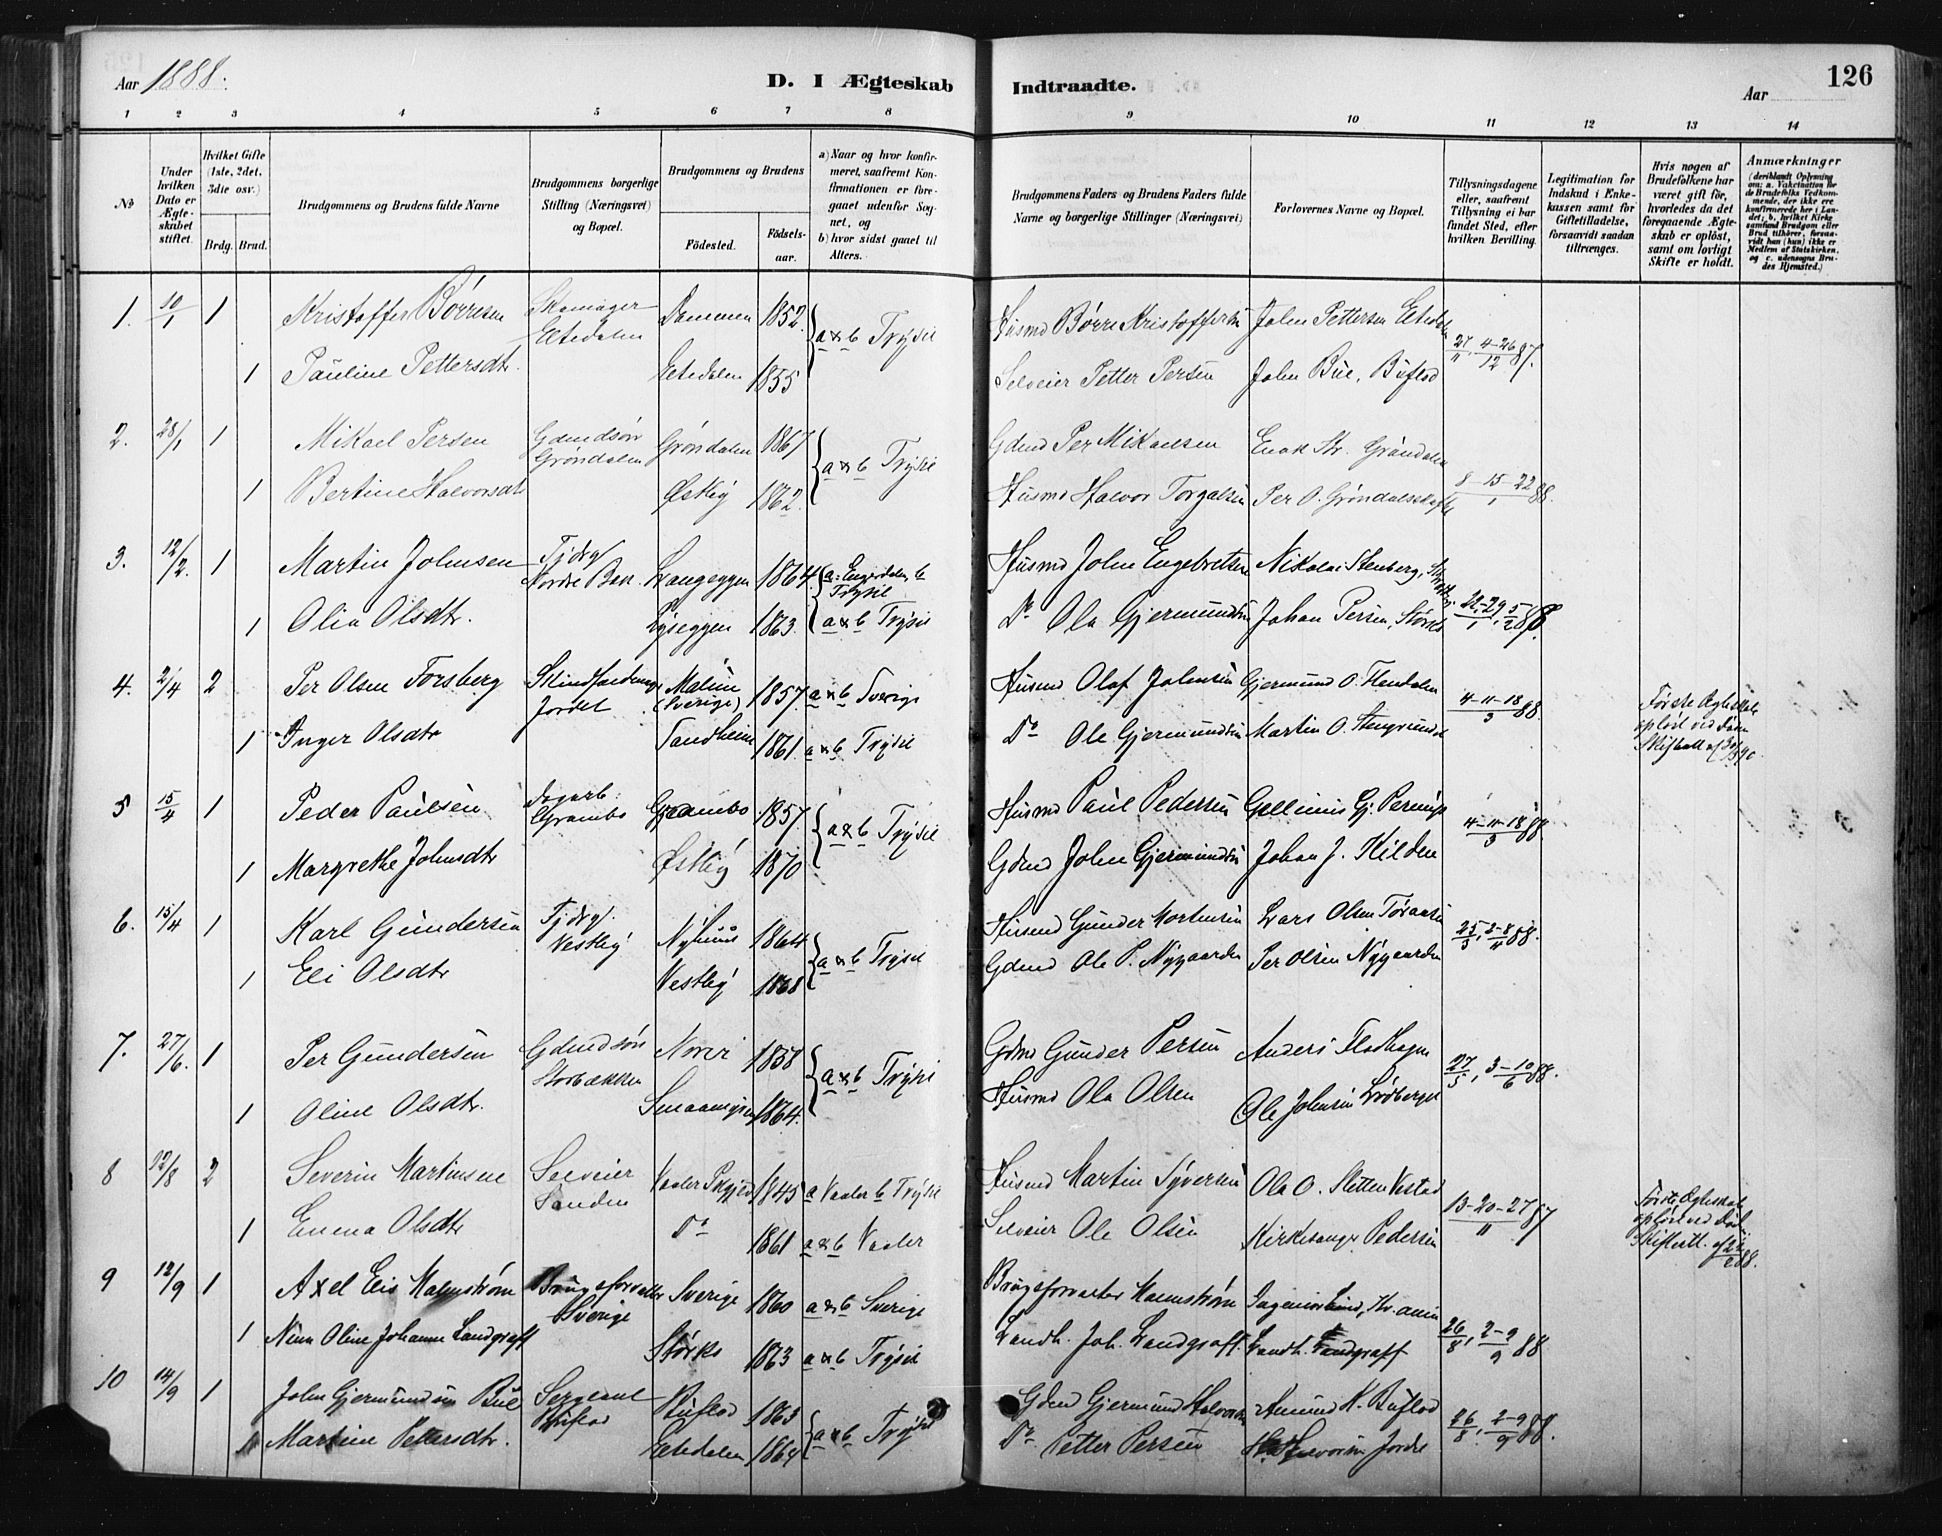 Aar 1888.
D. I Ægteskab Indtraadte.
Aar
126
1 2 3 4 5 6 7 8 9 10 11 12 13 14
No
Under hvilken Dato er Ægteskabet stiftet.
Hvilket Gifte (1ste, 2det, 3die osv.)
Brdg. Brud.
Brudgommens og Brudens fulde Navne
Brudgommens borgerlige Stilling (Næringsvei) og Bopæl.
Brudgommens og Brudens
Födested.
Födselsaar.
a) Naar og hvor konfirmeret, saafremt Konfirmationen er foregaaet udenfor Sognet, og
b) hvor sidst gaaet til Alters.
Brudgommens Faders og Brudens Faders fulde Navne og borgerlige Stillinger (Næringsvei)
Forlovernes Navne og Bopæl.
Tillysningsdagene eller, saafremt Tillysning ei har fundet Sted, efter hvilken Bevilling.
Legitimation for Indskud i Enkekassen samt for Giftetilladelse, forsaavidt saadan tiltrænges.
Hvis nogen af Brudefolkene har været gift för, hvorledes da det foregaaende Ægteskab er oplöst, samt om lovligt Skifte er holdt.
Anmærkninger
(deriblandt Oplysning om: a. Vakcination for de Brudefolks Vedkommende, der ikke ere konfirmerede her i Landet; b. hvilket Kirkesamfund Brudgom eller Brud tilhörer, forsaavidt han (hun) ikke er Medlem af Statskirken, og c. udensogns Brudes Hjemsted.)
1. 10/1 1 Kristoffer Börresen Skomager Eltedalen Dammen 1852 a & b Trysil Husmd Börre Kristoffersen John Pettersen Eltedalen 27/11, 4-26/12 87.
1 Pauline Pettersdtr. Eltedalen 1855 Selveier Petter Persen John Bue, Buflod
2. 28/1 1 Mikael Persen Gdmdsön Gröndalen Gröndalen 1867 a & b Trysil Gdmd Per Mikaelsen Enok Str. Gröndalen 8-15-22/1 88.
1 Bertine Halvorsdtr Östby 1862 Husmd Halvor Torgalsen Per O. Gröndalsskaft
3. 12/2. 1 Martin Johnsen Tjdrg/ Nordre Ban. Langeggen 1864. a: Engerdalen, b Trysil Husmd John Engebretsen Nikolai Stenberg, 22-29/1, 5/2 88.
1 Olia Olsdtr. Lyseggen 1863. a & b Trysil Do Ola Gjermundsen Johan Persen, Störks
4. 2/4 2 Per Olsen Forsberg Jordet Malun (Sverige) 1857 a & b Sverige Husmd Olof Johnsen Gjermund O. Flendalen 4-11-18/3 88. Første Ægteskab opløst ved Døden
1 Inger Olsdtr Sandheim 1861. a & b Trysil Do Ole Gjermundsen Martin O. Stengrundet
5 15/4 1 Peder Paulsen Dagarb. Grambo Grambo 1857. a & b Trysil Husmd Paul Pedersen Gj. 4-11-18/3 88.
1 Margrethe Johnsdtr Östby 1870 Gdmd John Gjermundsen Johan J. Kilden
6. 15/4 1 Karl Gundersen Tjdrg/. Vestby Nyhuus 1864 a & b Trysil Husmd Gunder Mortensen Lars Olsen 25/3, 2-8/4 88.
1 Eli Olsdtr Vestby 1868 Gdmd Ole P. Nygaarden Per Olsen Nygaarden
7. 27/6. 1 Per Gundersen Gdmdsön Storbækken Norer 1858 a & b Trysil Gdmd Gunder Persen Anders Flodhagen 27/5, 3-10/6 88.
1 Oline Olsdtr. 1864. Husmd Ola Olsen Ole Johnsen Lödberget
8 12/8 2 Severin Martinsen Selveier Sanden Vaaler 1845 a Vaaler b Trysil Husmd Martin Syversen Ola O. Sletten Vestad 13-20-27/11 87 Første Ægteskab opløst ved Døden
1 Emma Olsdtr Do 1861 a & b Vaaler Selveier Ole Olsen Kirkesanger Pedersen
9 12/9 1 Axel Malmström Brugsforvalter Sverige Sverige 1860 a & b Sverige Brugsforvalter Malmström Ingeniör 26/8, 2-9/9 88
1 Nina Oline Johanne Landgraff Störks 1863 a & b Trysil Landh. Joh. Landgraff. Landh. Landgraff
10 14/9 1 John Gjermundsen Bue Sergeant Buflod Buflod 1863 a & b Trysil Gdmd Gjermund Halvorsen Amund K. Buflod 26/8, 2-9/9 88.
1 Martine Pettersdtr. Eltedalen 1864 Do Petter Persen Halvorsen Jordet